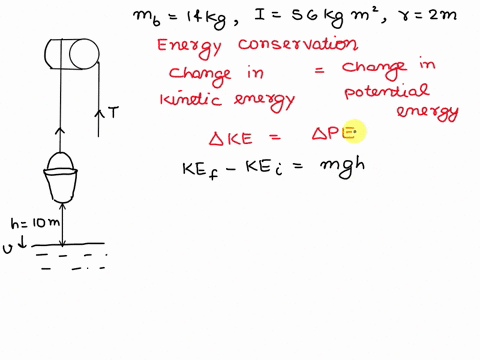 m_b = 14 kg , I = 56 kg m², r = 2m
Energy conservation
change in = change in
kinetic energy potential
energy
ΔKE = ΔPE
KE_f - KE_i = mgh
T
h = 10m
υ